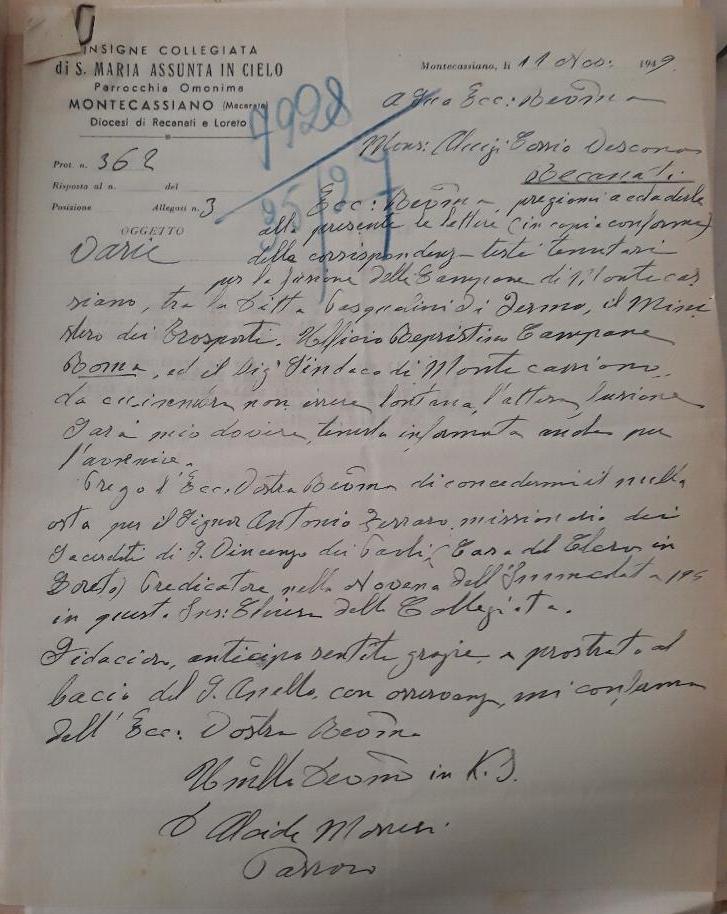 INSIGNE COLLEGIATA
di S. MARIA ASSUNTA IN CIELO
Parrocchia Omonima
MONTECASSIANO (Macerata)
Diocesi di Recanati e Loreto
Montecassiano, li 11 Nov. 1949.
A Sua Ecc: Rev̅ma
7928
Mons: Aluigi Cossio Vescovo
Recanati
Prot. n. 362
Risposto al n. del
Posizione Allegati n. 3
OGGETTO
Varie
Ecc: Rev̅ma, pregiomi accluderle
alla presente le lettere (in copia conforme)
della corrispondenza testè tenutasi
per la fusione delle Campane di Montecas
siano, tra la Ditta Pasqualini di Fermo, il Mini
stero dei Trasporti. Ufficio Ripristino Campane
Roma, ed il Sig Sindaco di Montecassiano,
da cui sembra non essere lontana, l'attesa fusione
Sarà mio dovere, tenerla informata anche per
l'avvenire.
Prego l'Ecc. Vostra Rev̅ma di concedermi il nulla
osta per il Signor Antonio Ferraro, missionario dei
Sacerdoti di S. Vincenzo dei Paoli, (Casa del Clero in
Loreto) Predicatore nella Novena dell'Immacolata 194
in questa Ins: Chiesa della Collegiata.
Fidacion, anticipo sentite grazie, e prostrato al
bacio del S. Anello, con osservanza, mi confermo
dell' Ecc: Vostra Rev̅ma
Umillo Devom̅o in X. J.
D Alcide Monceri
Parroco